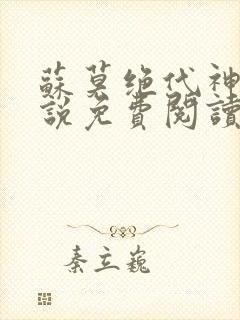 蘇莫绝代神
說免費閱讀
秦立巍